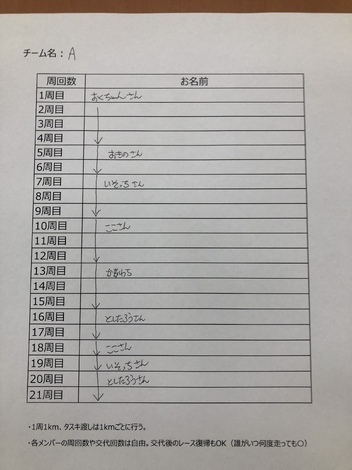 チーム名：A
周回数 お名前
1周目 おくちゃんさん
2周目
3周目
4周目
5周目 おきのさん
6周目
7周目 いそっちさん
8周目
9周目
10周目 ここさん
11周目
12周目
13周目
14周目
15周目
16周目 としたろうさん
17周目
18周目 ここさん
19周目 いそっちさん
20周目 としたろうさん
21周目
・1周1km、タスキ渡しは1kmごとに行う。
・各メンバーの周回数や交代回数は自由。交代後のレース復帰もOK（誰がいつ何度走っても〇）